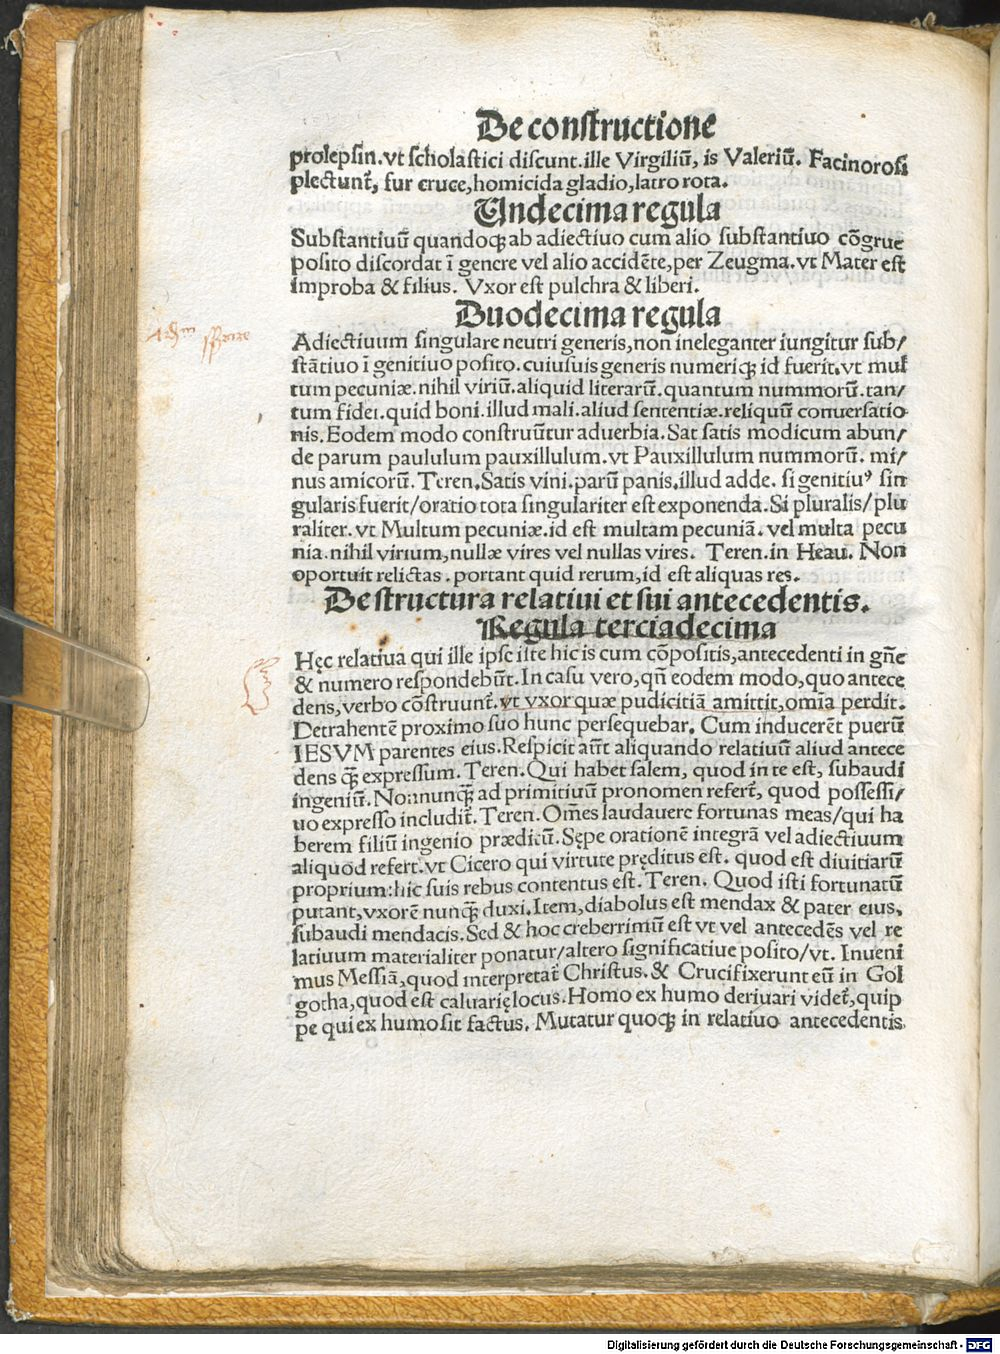 De constructione
prolepsin. vt scholastici discunt. ille Virgiliũ, is Valeriũ. Facinorosi
plectunt᷑, fur cruce, homicida gladio, latro rota.
Undecima regula
Substantiuũ quandoqꝫ ab adiectiuo cum alio substantiuo cõgrue
posito discordat ĩ genere vel alio accidẽte, per Zeugma. vt Mater est
improba & filius. Vxor est pulchra & liberi.
Duodecima regula
Adiectiuum singulare neutri generis, non ineleganter iungitur sub/
stãtiuo ĩ genitiuo posito. cuiusuis generis numeriqꝫ id fuerit. vt mul
tum pecuniæ. nihil viriũ. aliquid literarũ. quantum nummorũ. tan/
tum fidei. quid boni. illud mali. aliud sententiæ. reliquũ conuersatio
nis. Eodem modo construũtur aduerbia. Sat satis modicum abun/
de parum paululum pauxillulum. vt Pauxillulum nummorũ. mi/
nus amicorũ. Teren. Satis vini. parũ panis. illud adde. si genitiuꝰ sin
gularis fuerit/ oratio tota singulariter est exponenda. Si pluralis/ plu
raliter. vt Multum pecuniæ. id est multam pecuniã. vel multa pecu
nia. nihil virium, nullæ vires vel nullas vires. Teren. in Heau. Non
oportuit relictas. portant quid rerum, id est aliquas res.
De structura relatiui et sui antecedentis.
Regula terciadecima
Hęc relatiua qui ille ipse iste hic is cum cõpositis, antecedenti in gñe
& numero respondebũt. In casu vero, qñ eodem modo, quo antece
dens, verbo cõstruunt᷑. vt vxor quæ pudicitiã amittit, omĩa perdit.
Detrahentẽ proximo suo hunc persequebar. Cum inducerẽt puerũ
IESVM parentes eius. Respicit aũt aliquando relatiuũ aliud antece
dens qᷓꝫ expressum. Teren. Qui habet salem, quod in te est, subaudi
ingeniũ. Nonnunqᷓꝫ ad primitiuũ pronomen refert᷑, quod possessi/
uo expresso includit᷑. Teren. Om̃es laudauere fortunas meas/ qui ha
berem filiũ ingenio præditũ. Sępe orationẽ integrã vel adiectiuum
aliquod refert. vt Cicero qui virtute pręditus est. quod est diuitiarũ
proprium: hic suis rebus contentus est. Teren. Quod isti fortunatũ
putant, vxorẽ nunqᷓꝫ duxi. Item, diabolus est mendax & pater eius,
subaudi mendacis. Sed & hoc creberrimũ est vt vel antecedẽs vel re
latiuum materialiter ponatur/ altero significatiue posito/ vt. Inueni
mus Messiã, quod interpretat᷑ Christus. & Crucifixerunt eũ in Gol
gotha, quod est caluarię locus. Homo ex humo deriuari videt᷑, quip
pe qui ex humo sit factus. Mutatur quoqꝫ in relatiuo antecedentis
Digitalisierung gefördert durch die Deutsche Forschungsgemeinschaft - DFG